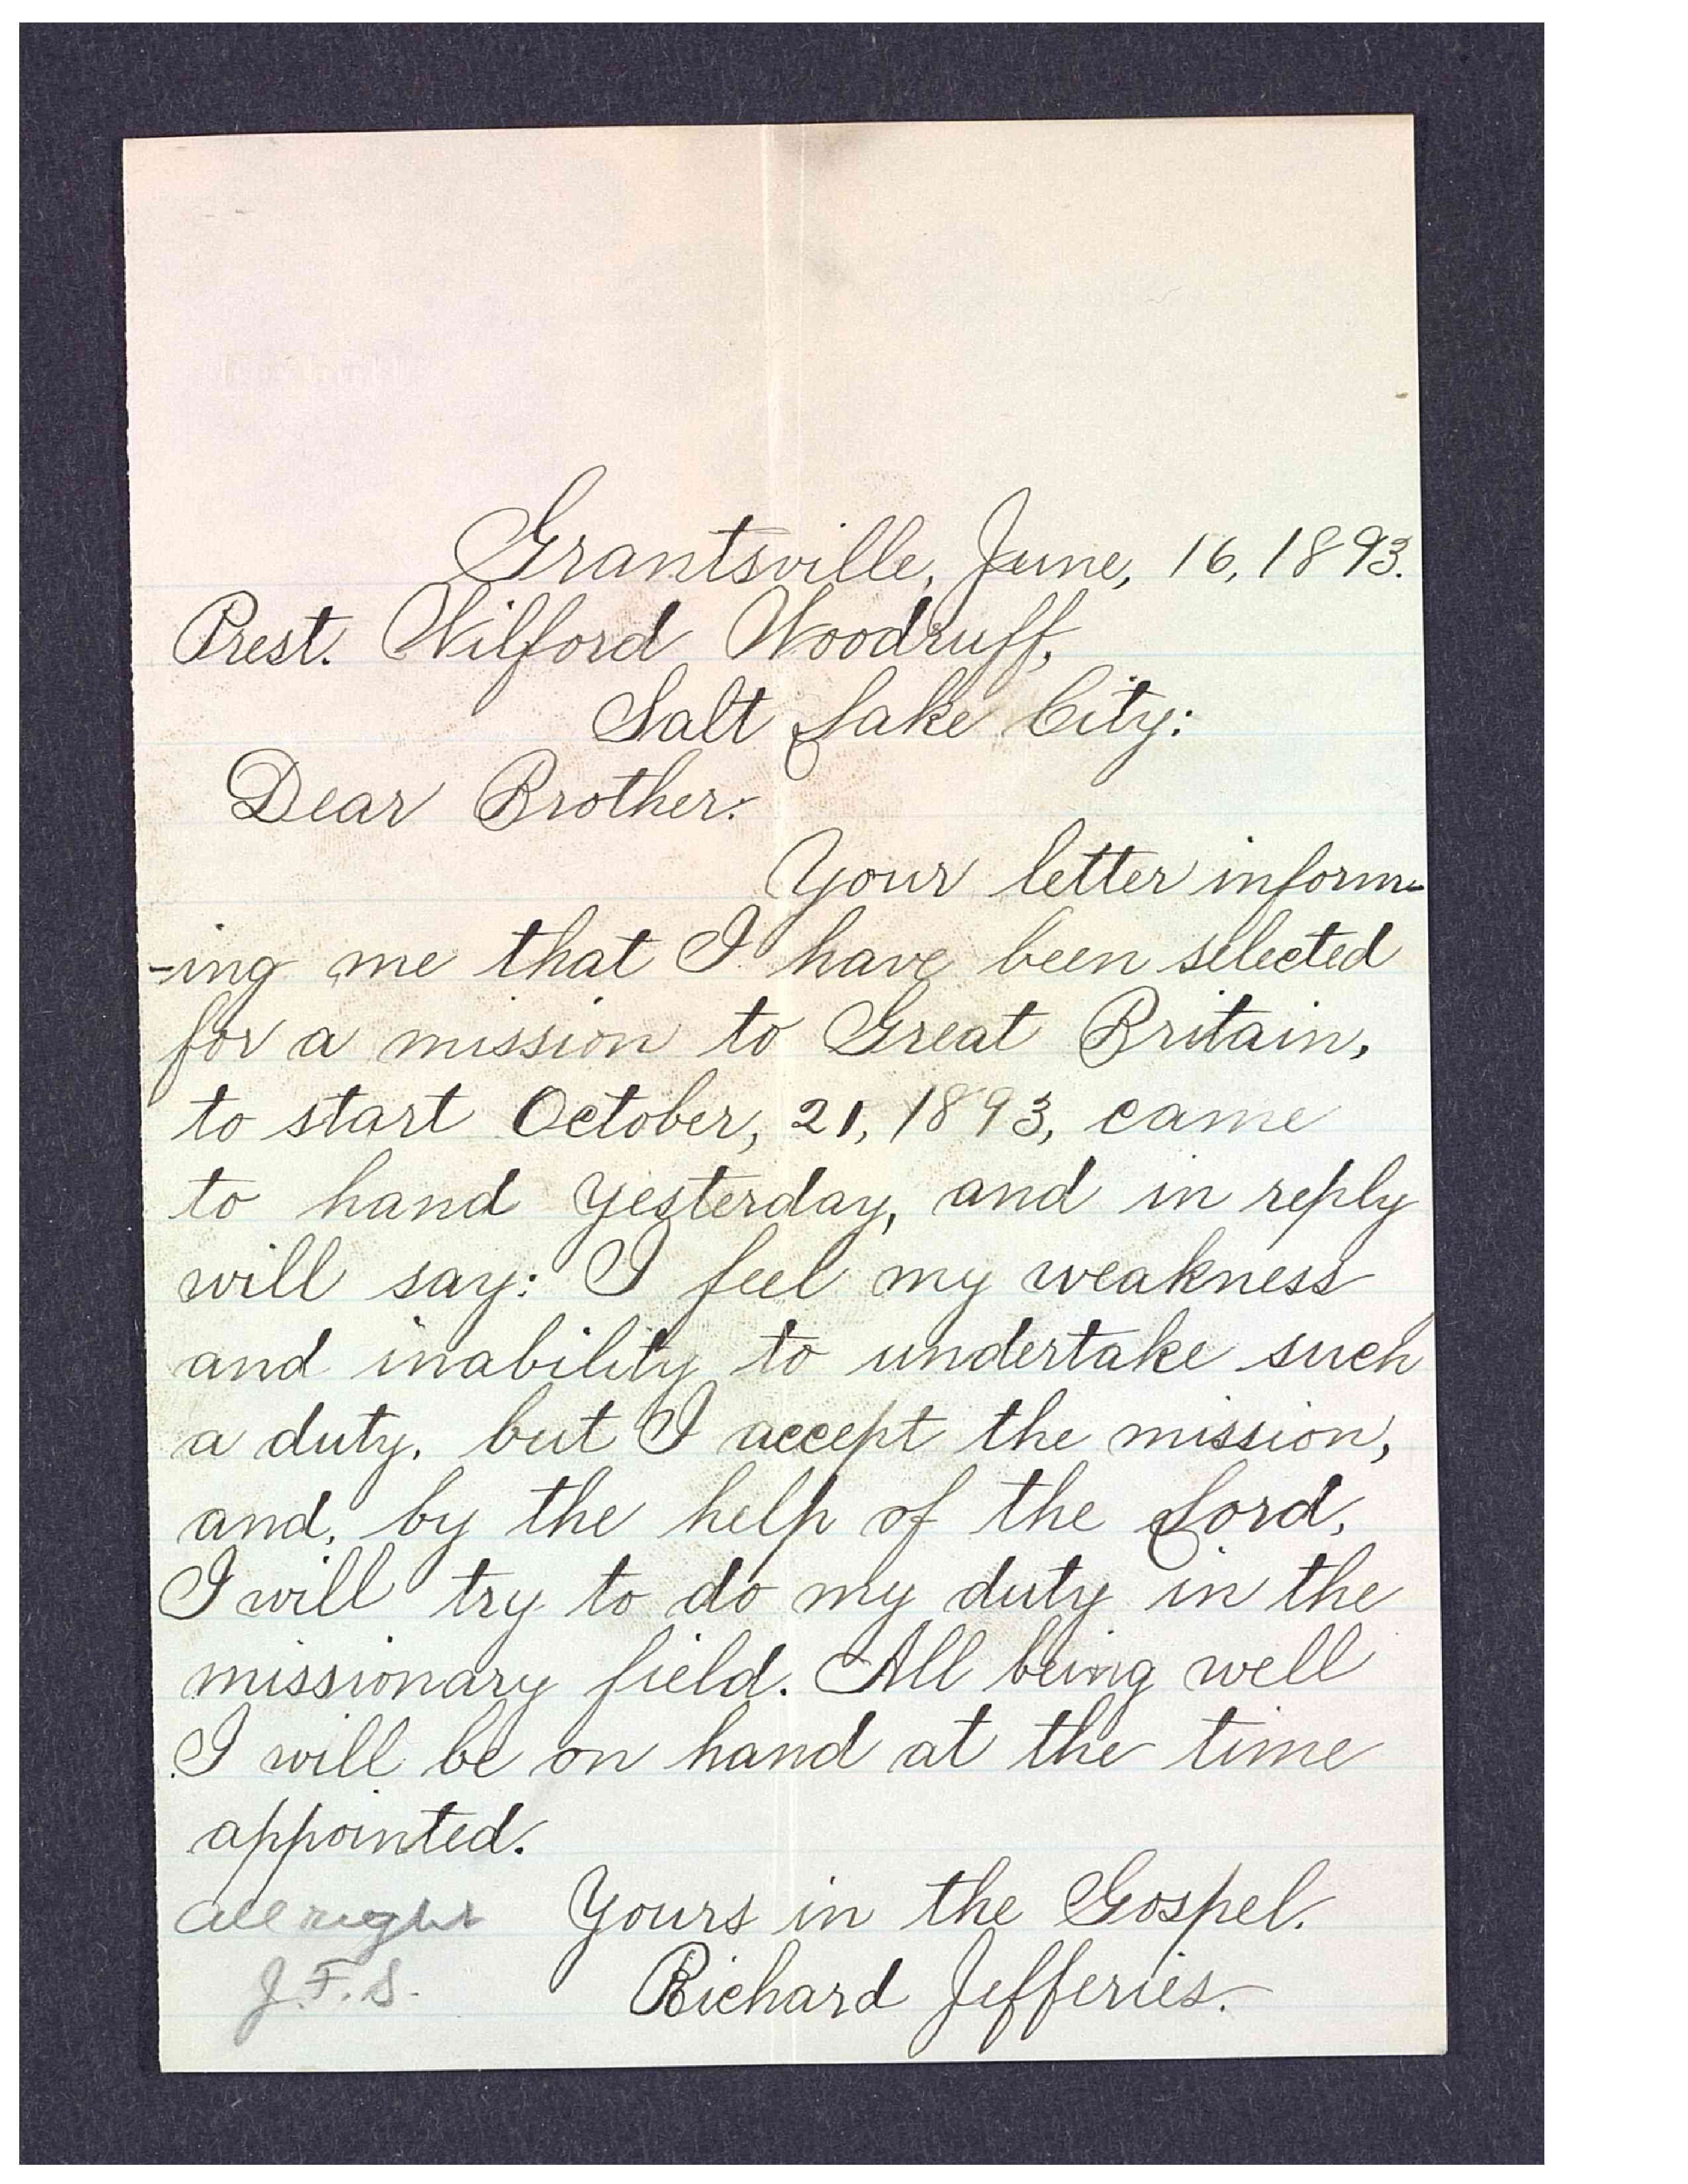 Grantsville, June, 16, 1893.
Prest. Wilford Woodruff,
Salt Lake City:
Dear Brother:
Your letter inform-
-ing me that I have been selected
for a mission to Great Britain,
to start October, 21, 1893, came
to hand yesterday, and in reply
will say: I feel my weakness
and inability to undertake such
a duty, but I accept the mission,
and, by the help of the Lord,
I will try to do my duty in the
missionary field. All being well
I will be on hand at the time
appointed.
Yours in the Gospel.
Richard Jefferies.
all right
J.F.S.